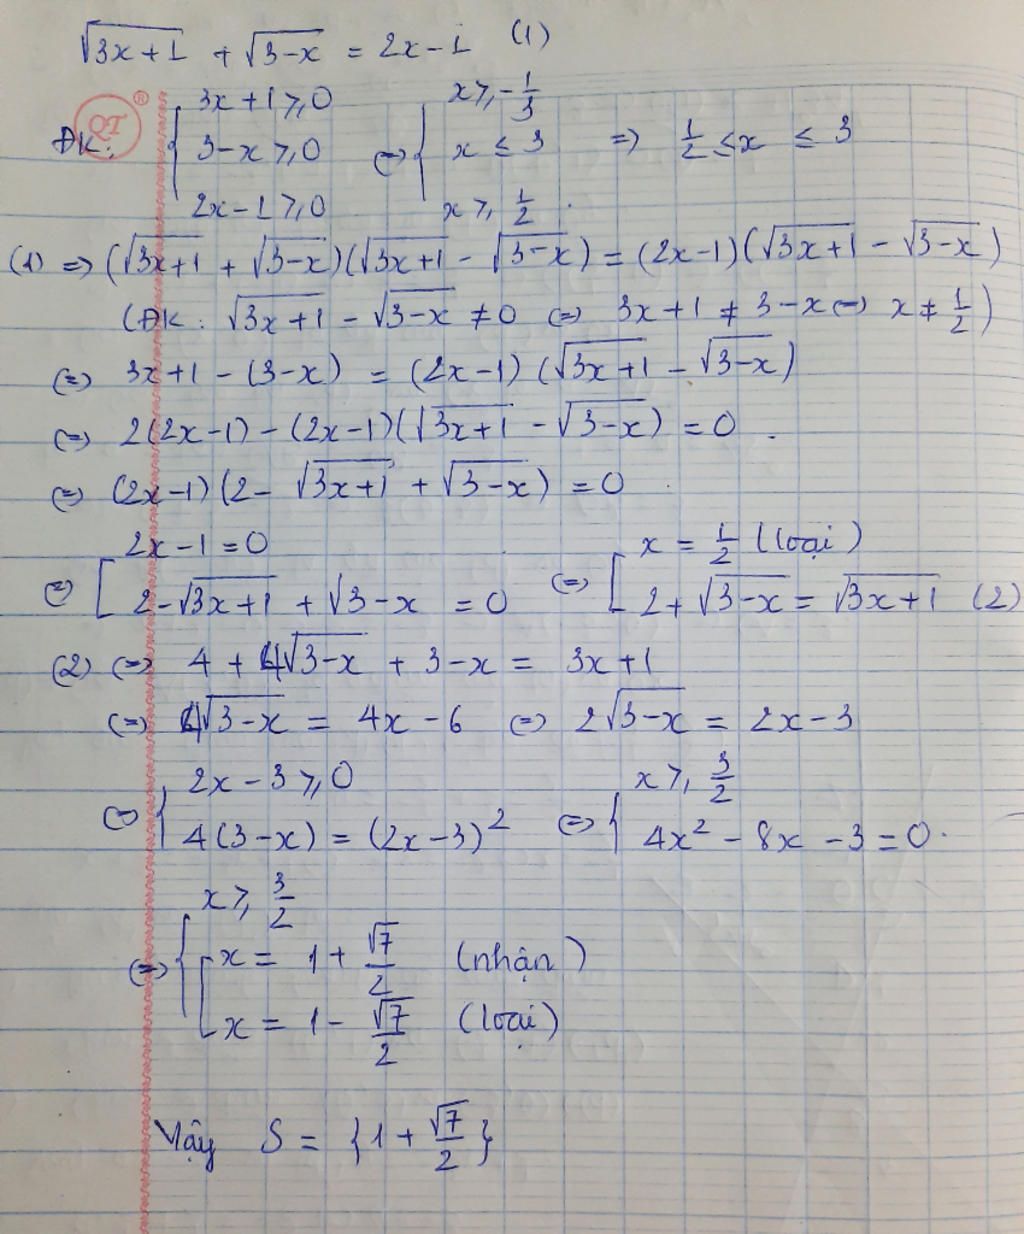 √(3x+1) + √(3-x) = 2x-1 (1)
QT ®
ĐK: { 3x+1 ⩾ 0 ; 3-x ⩾ 0 ; 2x-1 ⩾ 0 ⇔ { x ⩾ -1/3 ; x ≤ 3 ; x ⩾ 1/2 . ⇒ 1/2 ≤ x ≤ 3
(1) ⇒ (√(3x+1) + √(3-x))(√(3x+1) - √(3-x)) = (2x-1)(√(3x+1) - √(3-x))
(ĐK: √(3x+1) - √(3-x) ≠ 0 ⇔ 3x+1 ≠ 3-x ⇔ x ≠ 1/2)
⇔ 3x+1 - (3-x) = (2x-1)(√(3x+1) - √(3-x))
⇔ 2(2x-1) - (2x-1)(√(3x+1) - √(3-x)) = 0 .
⇔ (2x-1)(2 - √(3x+1) + √(3-x)) = 0
⇔ [ 2x-1 = 0 ; 2 - √(3x+1) + √(3-x) = 0 ⇔ [ x = 1/2 (loại) ; 2 + √(3-x) = √(3x+1) (2)
(2) ⇔ 4 + 4√(3-x) + 3-x = 3x+1
⇔ 4√(3-x) = 4x-6 ⇔ 2√(3-x) = 2x-3
⇔ { 2x-3 ⩾ 0 ; 4(3-x) = (2x-3)² ⇔ { x ⩾ 3/2 ; 4x² - 8x - 3 = 0.
⇔ { x ⩾ 3/2
[ x = 1 + √7/2 (nhận)
x = 1 - √7/2 (loại)
Vậy S = {1 + √7/2}